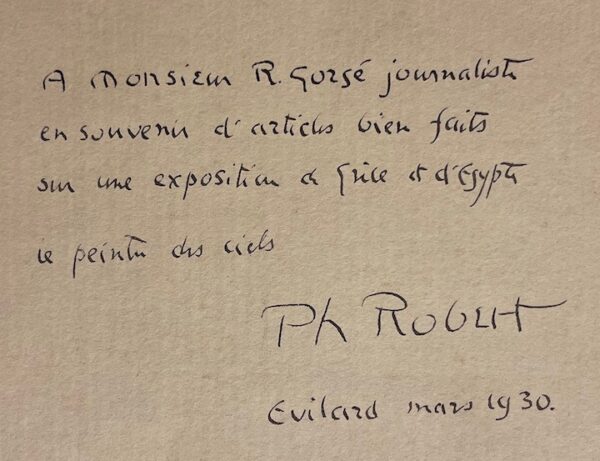 A Monsieur R. Gorgé journaliste
en souvenir d'articles bien faits
sur une exposition de Grèce et d'Egypte
le peintre des ciels
Ph Robert
Evilard mars 1930.